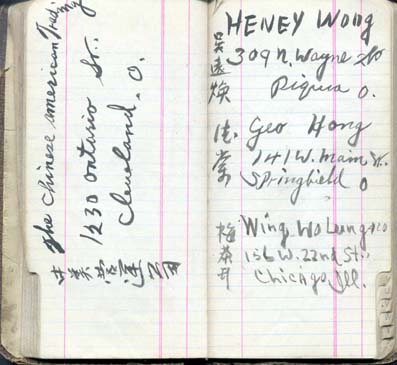 The Chinese American Trading
1230 Ontario St.
Cleveland. O.
HENEY Wong
309 N. Wayne St
Piqua O.
吳遠煥
Geo Hong
141 W. Main St.
Springfield O
Wing Wo Lung Co
156 W. 22nd St.
Chicago, Ill.